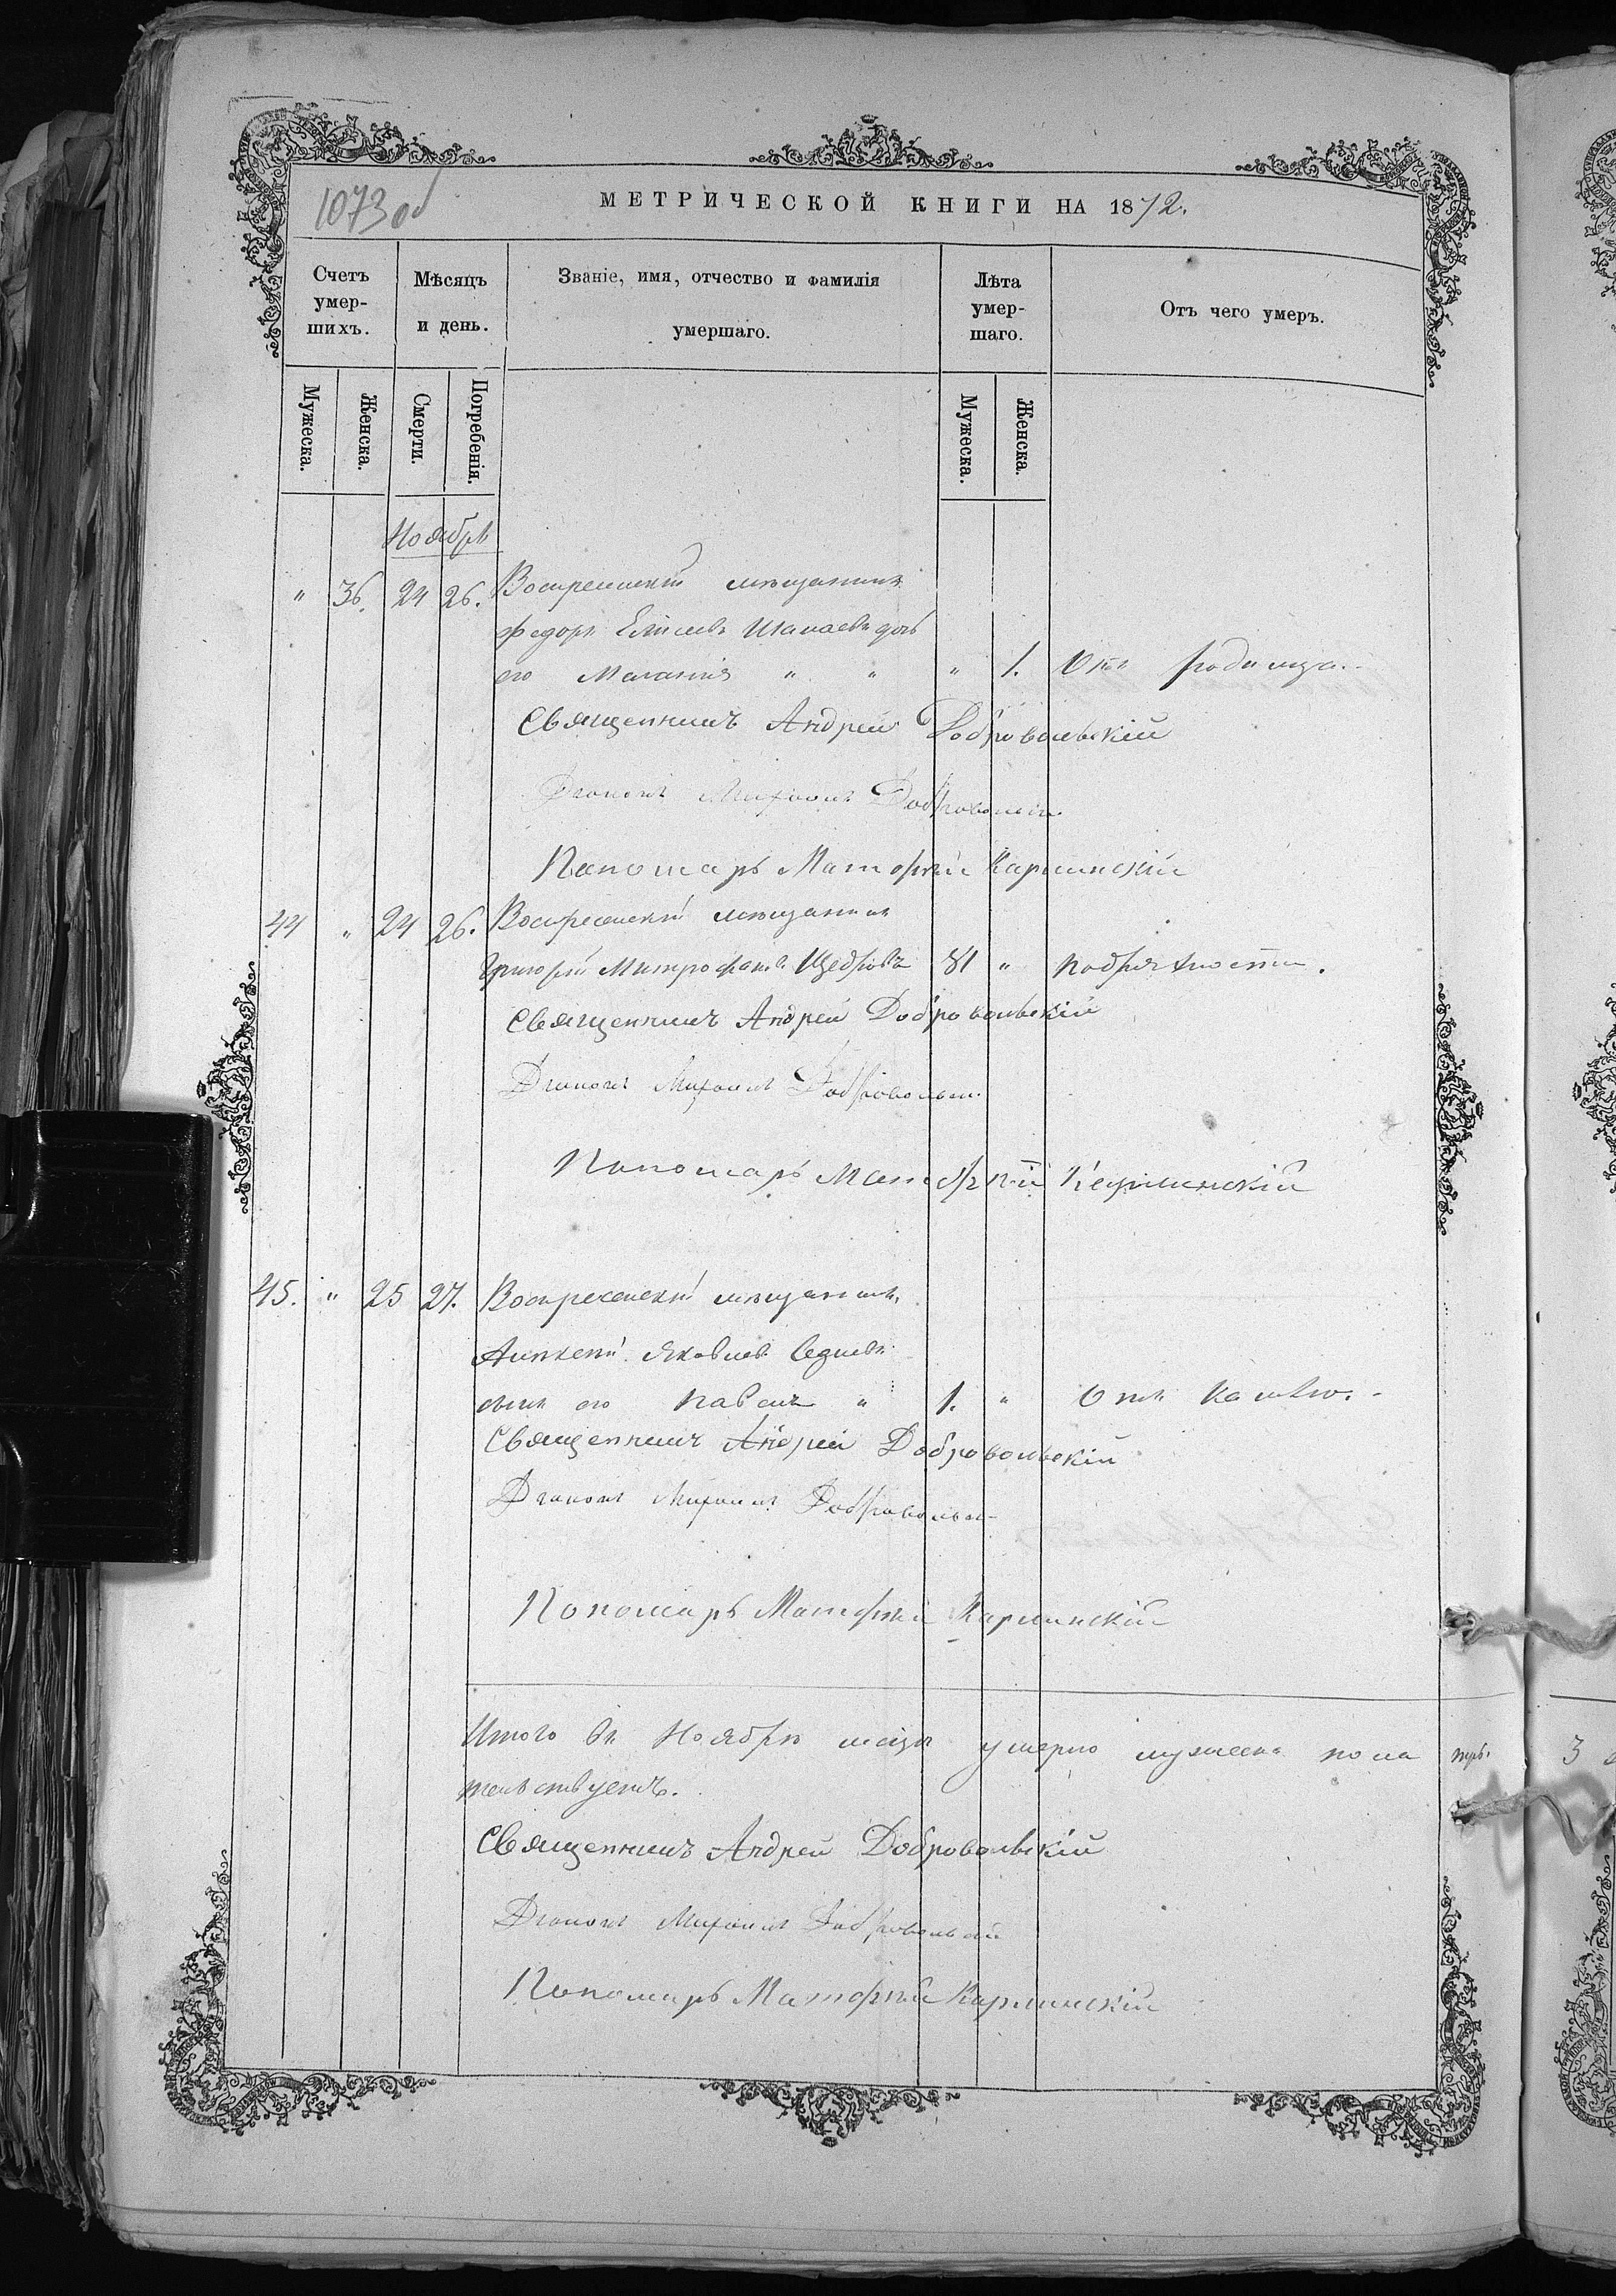 1073об
МЕТРИЧЕСКОЙ КНИГИ НА 1872.
Счетъ умер-шихъ.
Мѣсяцъ и день.
Званіе, имя, отчество и фамилія умершаго.
Лѣта умер-шаго.
Отъ чего умеръ.
Мужеска.
Женска.
Смерти.
Погребенія.
Мужеска.
Женска.
Ноябрь
" 36. 24 26. Воскресенскій мѣщанинъ
Федоръ дочь
его Маланія " " " 1. Отъ родимца.
Священникъ Андрей Добровольскій
Діаконъ Михаилъ Добровольскій
Пономарь Матфей Карпинскій
44 " 24 26. Воскресенскій мѣщанинъ
Григорій Митрофановъ Щедровъ 81 "
Священникъ Андрей Добровольскій
Діаконъ Михаилъ Добровольскій
Пономарь Матфей Карпинскій
45. " 25 27. Воскресенскій мѣщанинъ
Алексѣй Яковлевъ
сынъ его Павелъ " 1. " Отъ кашлю.
Священникъ Андрей Добровольскій
Діаконъ Михаилъ Добровольскій
Пономарь Матфей Карпинскій
Итого въ Ноябрѣ мѣсяцѣ умерло мужеска пола
Священникъ Андрей Добровольскій
Діаконъ Михаилъ Добровольскій
Пономарь Матфей Карпинскій
3